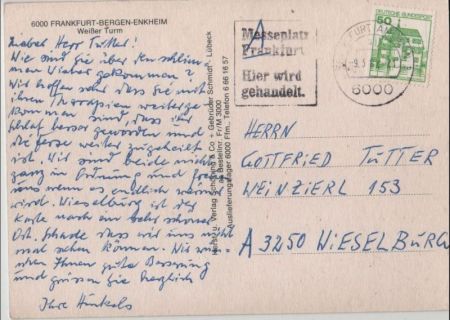 6000 FRANKFURT-BERGEN-ENKHEIM
Weißer Turm
Lieber Herr Tutter!
Wie sind Sie über den schlim
men Winter gekommen?
Wir hoffen sehr dass Sie mit
ihren Therapien weiterge
kommen sind, dass ihr
Schlaf besser geworden und
die Ferse weiter zugeheilt
ist. Wir sind beide nicht
ganz in Ordnung und
wenn es endlich wärmer
wird. Wieselburg ist der
Karte nach ein sehr schöner
Ort. Schade dass wir uns nicht
mal sehen können. Wir wün
schen Ihnen gute Besserung
und grüssen Sie herzlich
Ihre Hinkels
Verlag Schöning & Co + Gebrüder Schmidt, Lübeck
Bestellnr. Fr/M 3000
Auslieferungslager 6000 Ffm., Telefon 6 66 16 57
Messeplatz
Frankfurt
Hier wird
gehandelt.
6000
DEUTSCHE BUNDESPOST
50
HERRN
GOTTFRIED TUTTER
WEINZIERL 153
A 3250 WIESELBURG